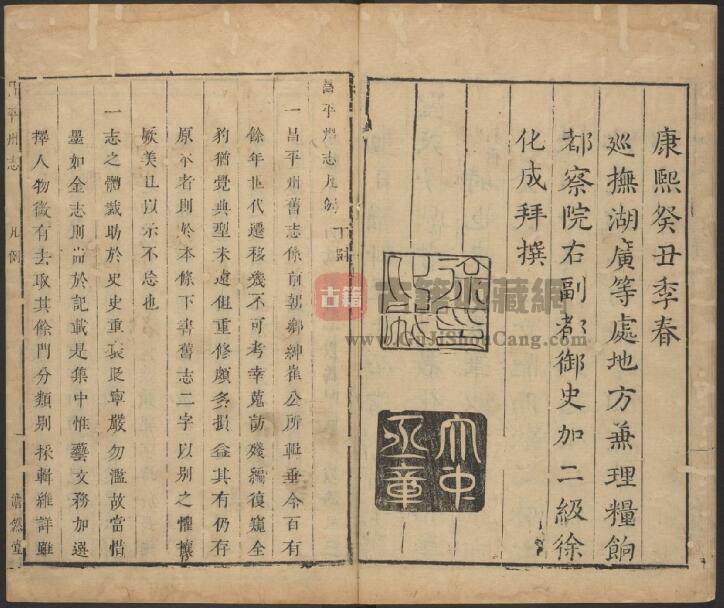 康熙癸丑季春
廵撫湖廣等處地方兼理糧餉
都察院右副都御史加二級徐
化成拜撰
大中丞章
昌平州志凡例
一昌平州舊志係前朝鄉紳崔公所輯垂今百有
餘年世代遷移幾不可考幸蒐訪殘編復窺全
豹猶覺典型未遠但重修頗多損益其有仍存
原本者則於本條下書舊志二字以别之懼攘
厥美且以示不忘也
一志之體裁昉於史史重袞貶寧嚴勿濫故當惜
墨如金志則尚於記載是集中惟藝文務加選
擇人物微有去取其餘門分類别採輯維詳雖
平州志
凡例
澹然堂
古籍
古籍收藏網
www.GuJiShouCang.com